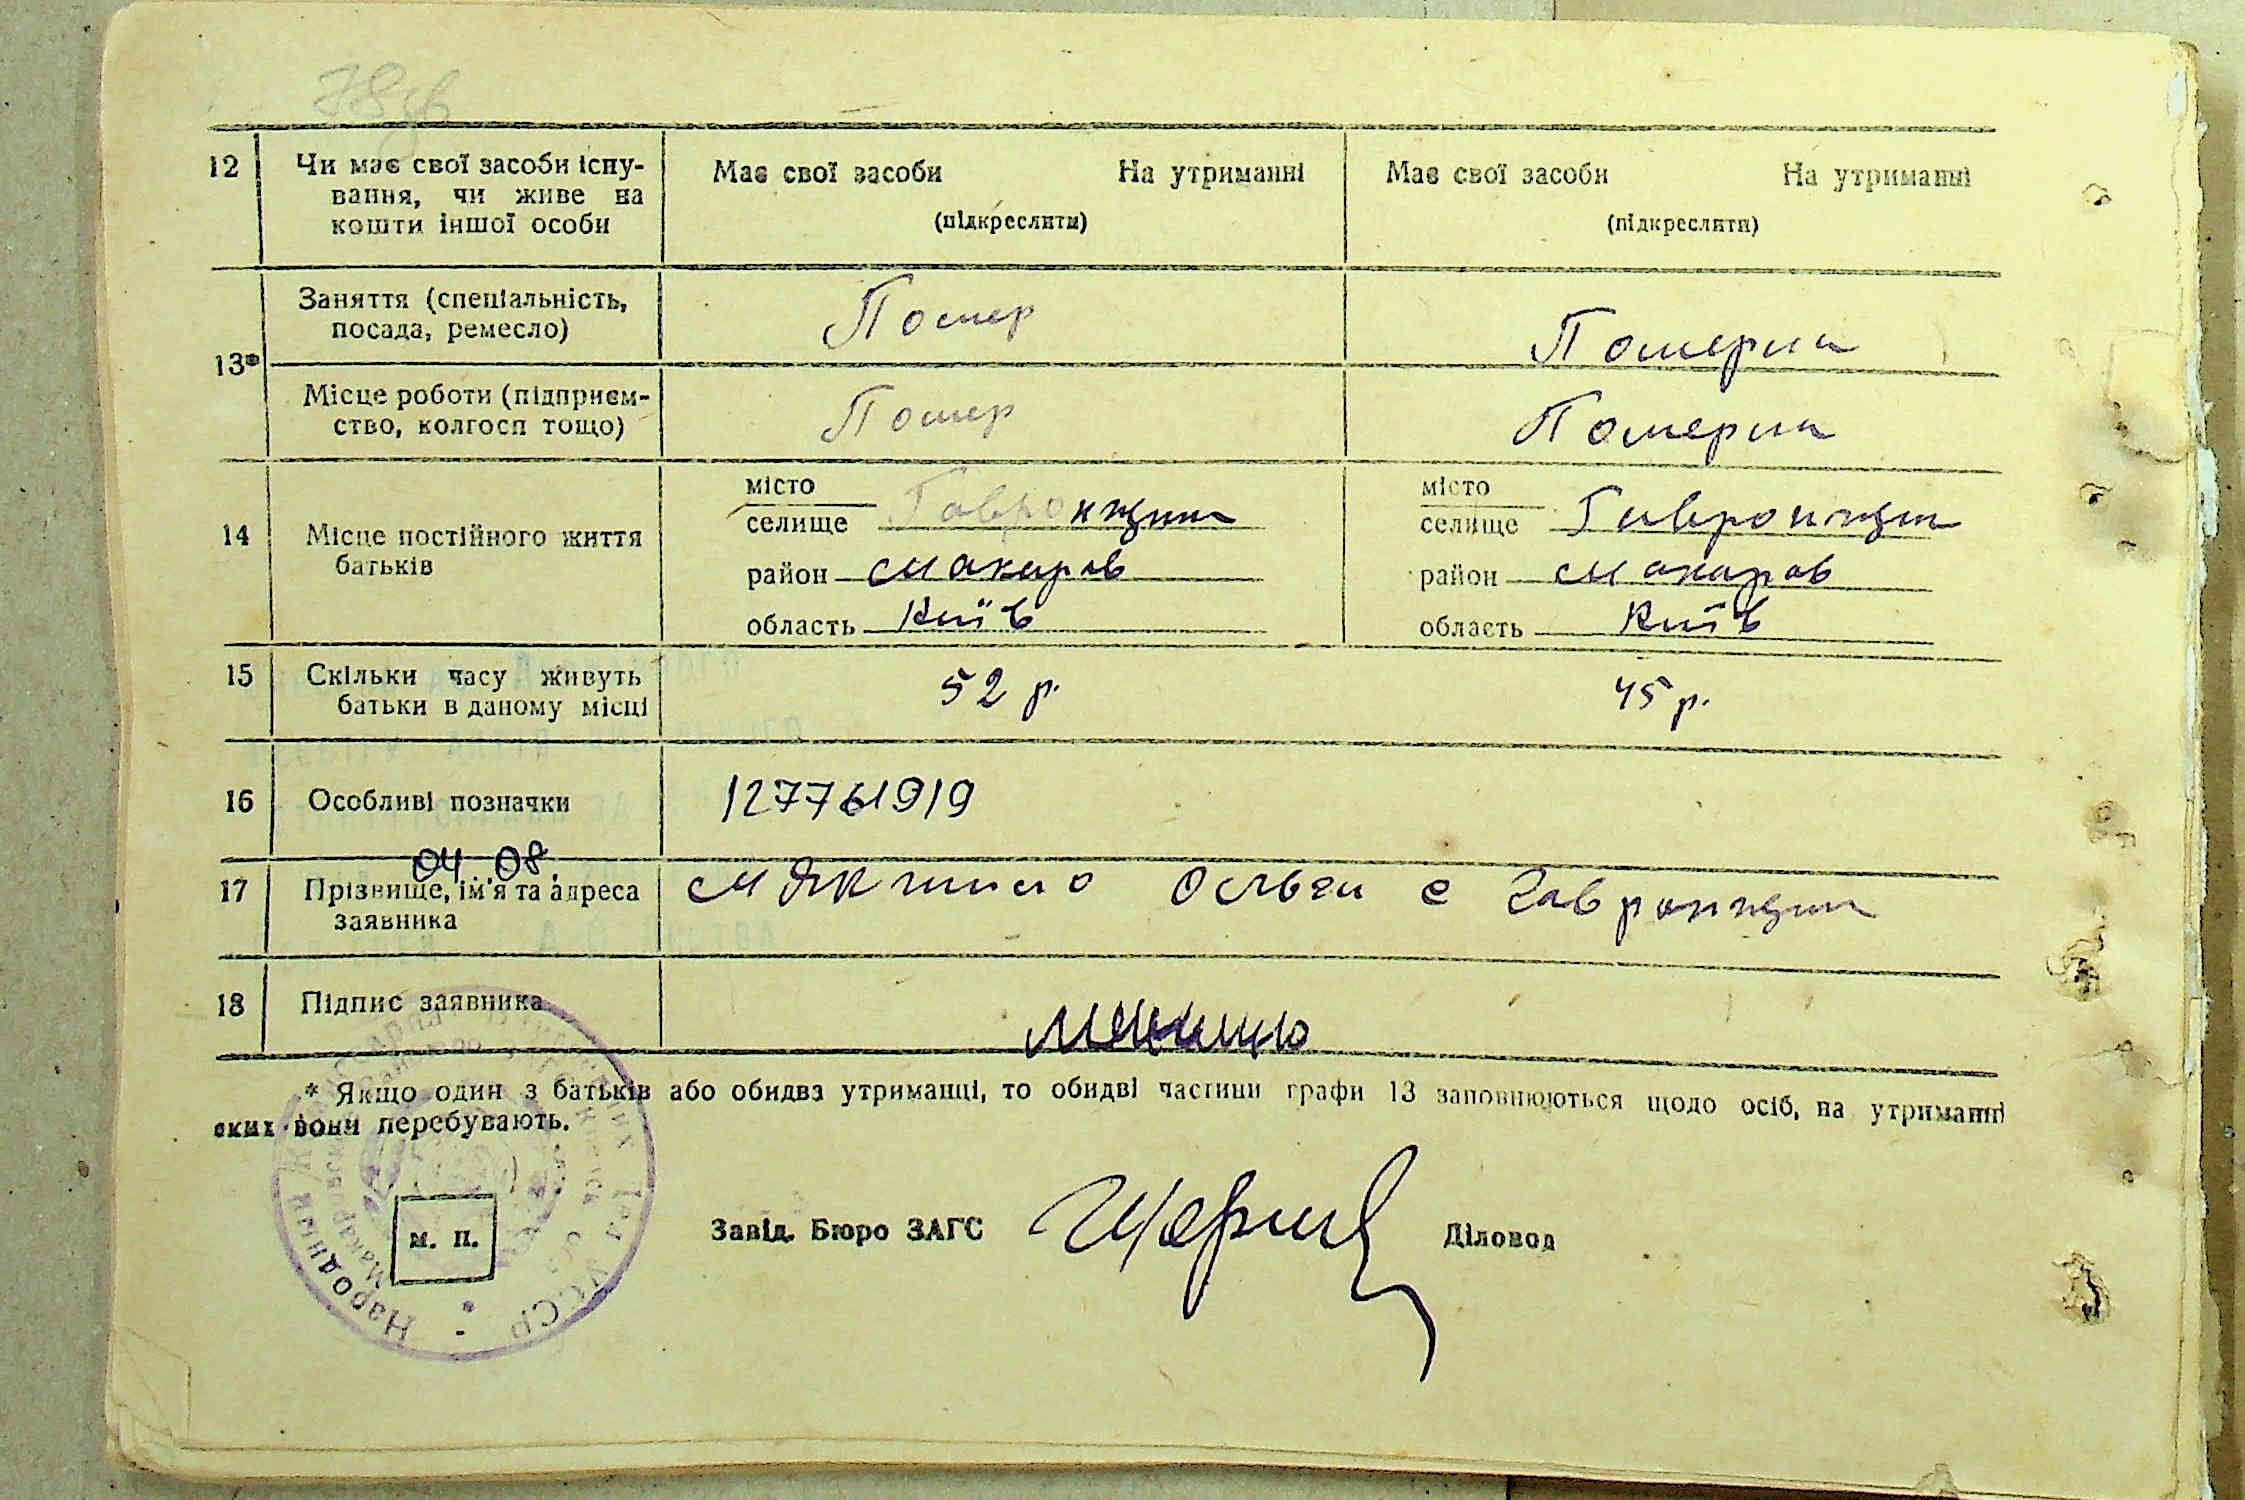 78
12 Чи має свої засоби існу-
вання, чи живе на
кошти іншої особи
Має свої засоби На утриманні
(підкреслити)
Має свої засоби На утриманні
(підкреслити)
13*
Заняття (спеціальність,
посада, ремесло)
Помер
Померла
Місце роботи (підприєм-
ство, колгосп тощо)
Помер
Померла
14 Місце постійного життя
батьків
місто
селище Гавронщина
район Макарів
область Київ
місто
селище Гавронщина
район Макарів
область Київ
15 Скільки часу живуть
батьки в даному місці
52 р.
45 р.
16 Особливі позначки
127761919
04 08
17 Прізвище, ім'я та адреса
заявника
Ольга с Гавронщина
18 Підпис заявника
* Якщо один з батьків або обидва утриманці, то обидві частини графи 13 заповнюються щодо осіб, на утриманні
яких вони перебувають.
Народний
УСРР
м. п.
Завід. Бюро ЗАГС
Діловод